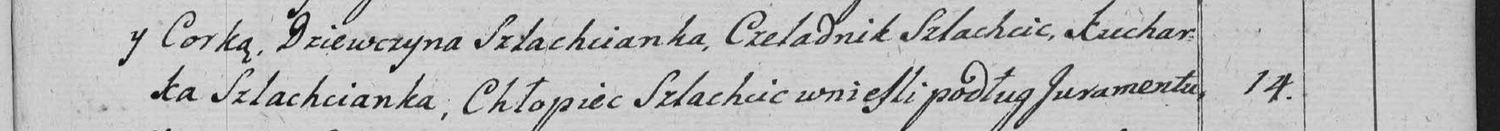 y Corką, Dziewczyna Szlachcianka, Czeladnik Szlachcic, Kuchar-
ka Szlachcianka, Chłopiec Szlachcic wnieśli podług Juramentu, 14.